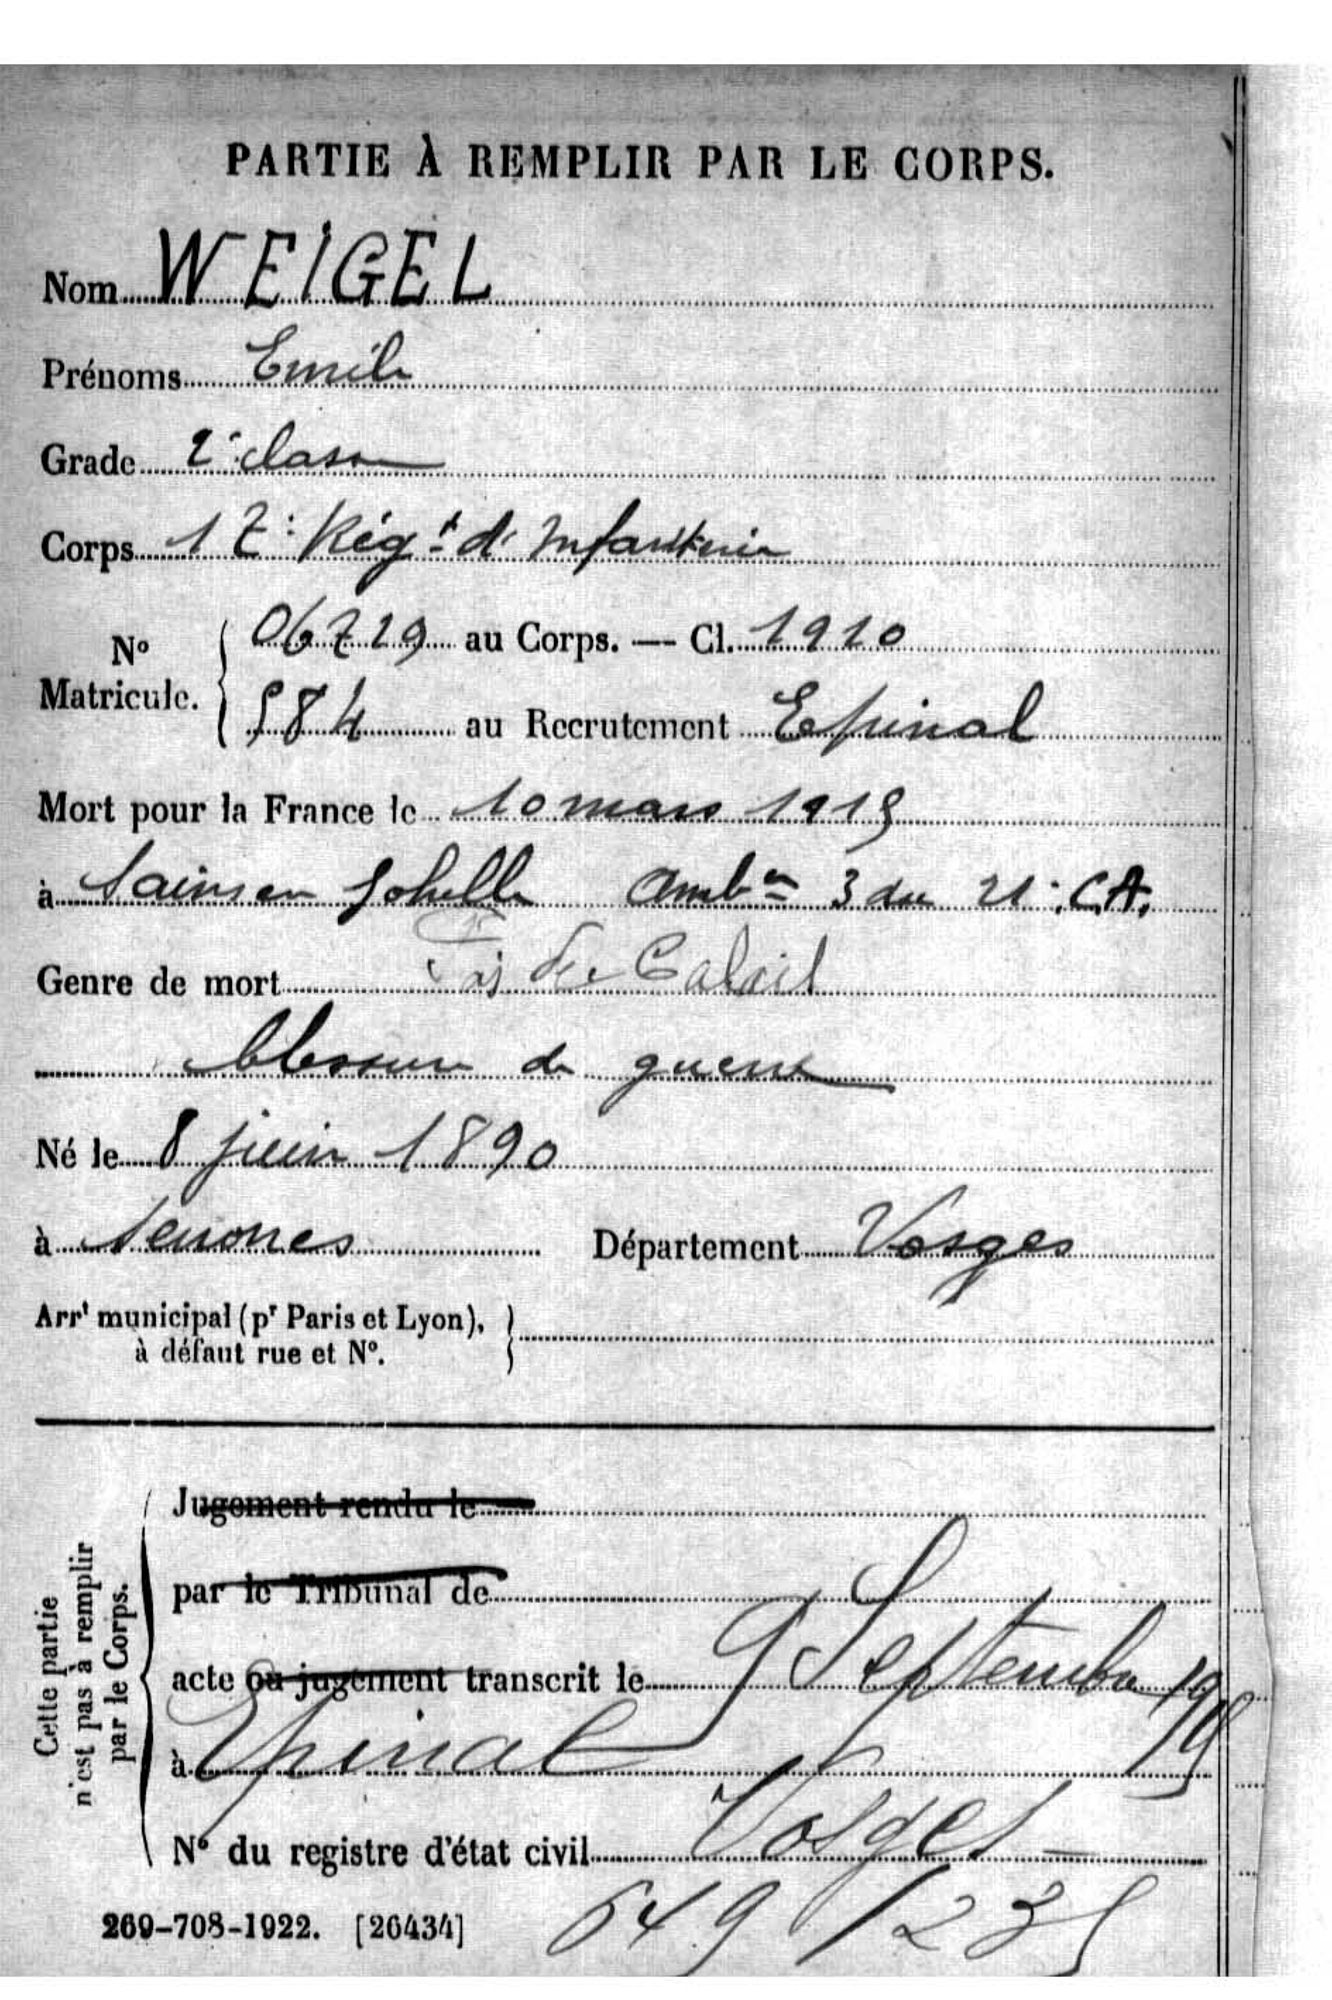 PARTIE À REMPLIR PAR LE CORPS.
Nom WEIGEL
Prénoms Emile
Grade 2e classe
Corps 17e Régt d'Infanterie
No Matricule. 06729 au Corps. — Cl. 1910
584 au Recrutement Epinal
Mort pour la France le 10 mars 1915
à Sains en Gohelle Ambce 3 du 21e C.A.
Genre de mort Pas de Calais
blessure de guerre
Né le 8 juin 1890
à Senones Département Vosges
Arrt municipal (pr Paris et Lyon),
à défaut rue et No.
Cette partie
n'est pas à remplir
par le Corps.
Jugement rendu le
par le Tribunal de
acte ou jugement transcrit le 9 Septembre 1915
à Epinal
Vosges
No du registre d'état civil
649/235
269-708-1922. [26434]